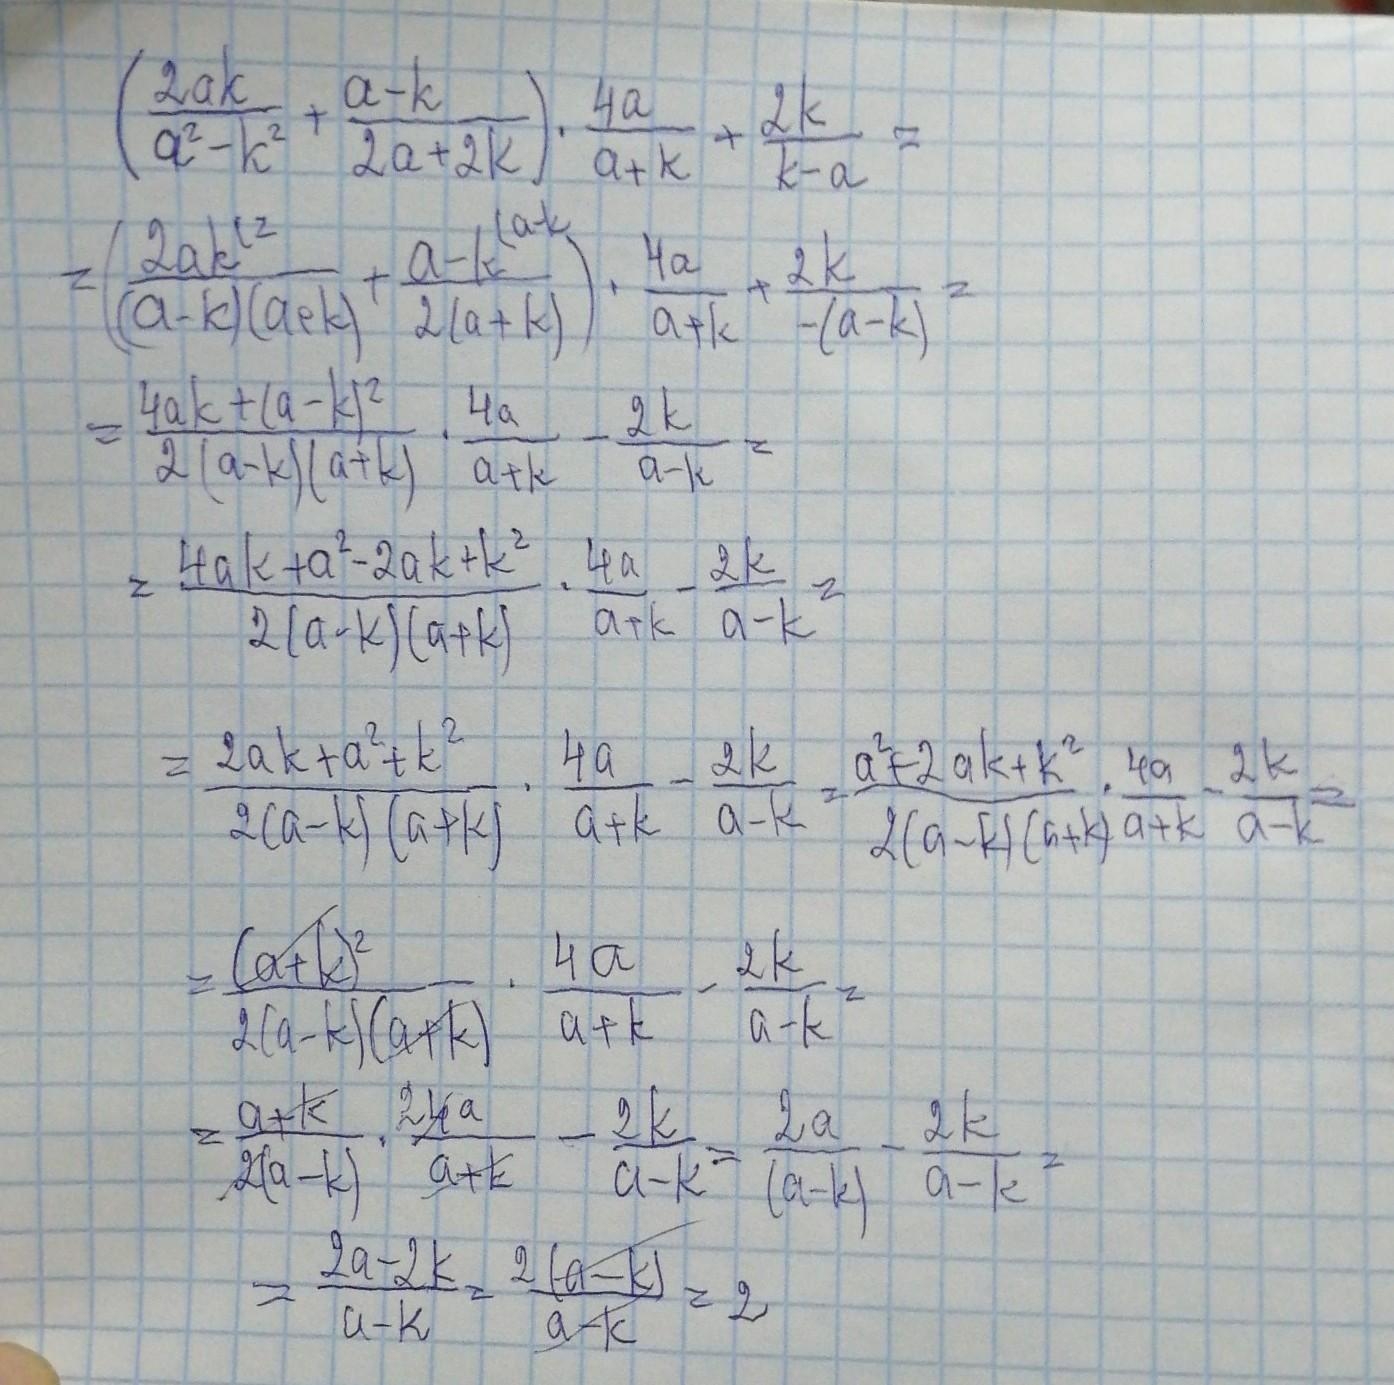 (2ak/(a²-k²) + (a-k)/(2a+2k)) · 4a/(a+k) + 2k/(k-a) =
= (2ak^(2/((a-k)(a+k)) + a-k^(a-k/(2(a+k))) · 4a/(a+k) + 2k/(-(a-k)) =
= (4ak+(a-k)²)/(2(a-k)(a+k)) · 4a/(a+k) - 2k/(a-k) =
= (4ak+a²-2ak+k²)/(2(a-k)(a+k)) · 4a/(a+k) - 2k/(a-k) =
= (2ak+a²+k²)/(2(a-k)(a+k)) · 4a/(a+k) - 2k/(a-k) = (a²+2ak+k²)/(2(a-k)(a+k)) · 4a/(a+k) - 2k/(a-k) =
= (a+k)²/(2(a-k)(a+k)) · 4a/(a+k) - 2k/(a-k) =
= (a+k)/(2(a-k)) · 2 4a/(a+k) - 2k/(a-k) = 2a/(a-k) - 2k/(a-k) =
= (2a-2k)/(a-k) = 2(a-k)/(a-k) = 2